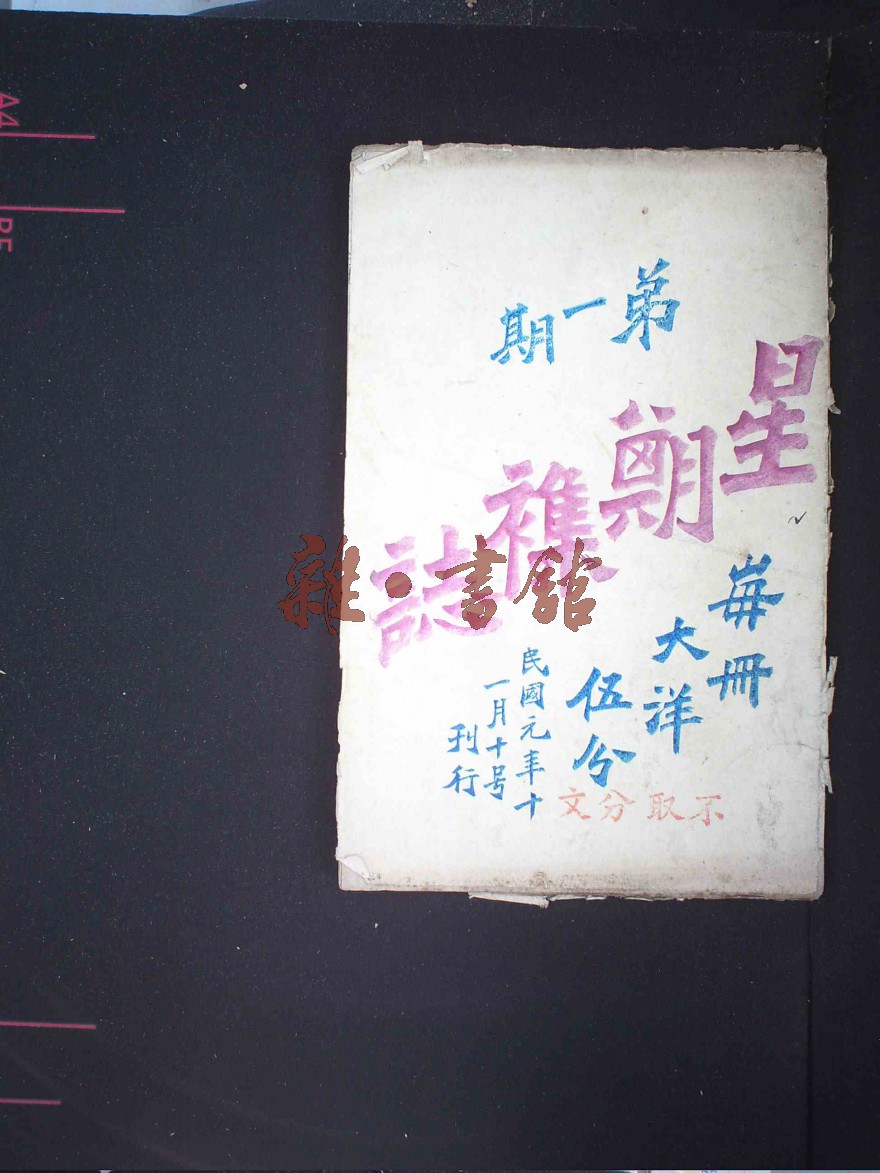 弟一期
星期襍誌
每冊
大洋
伍分
不取分文
民國元年十
一月十号
刊行
雜·書館
A4